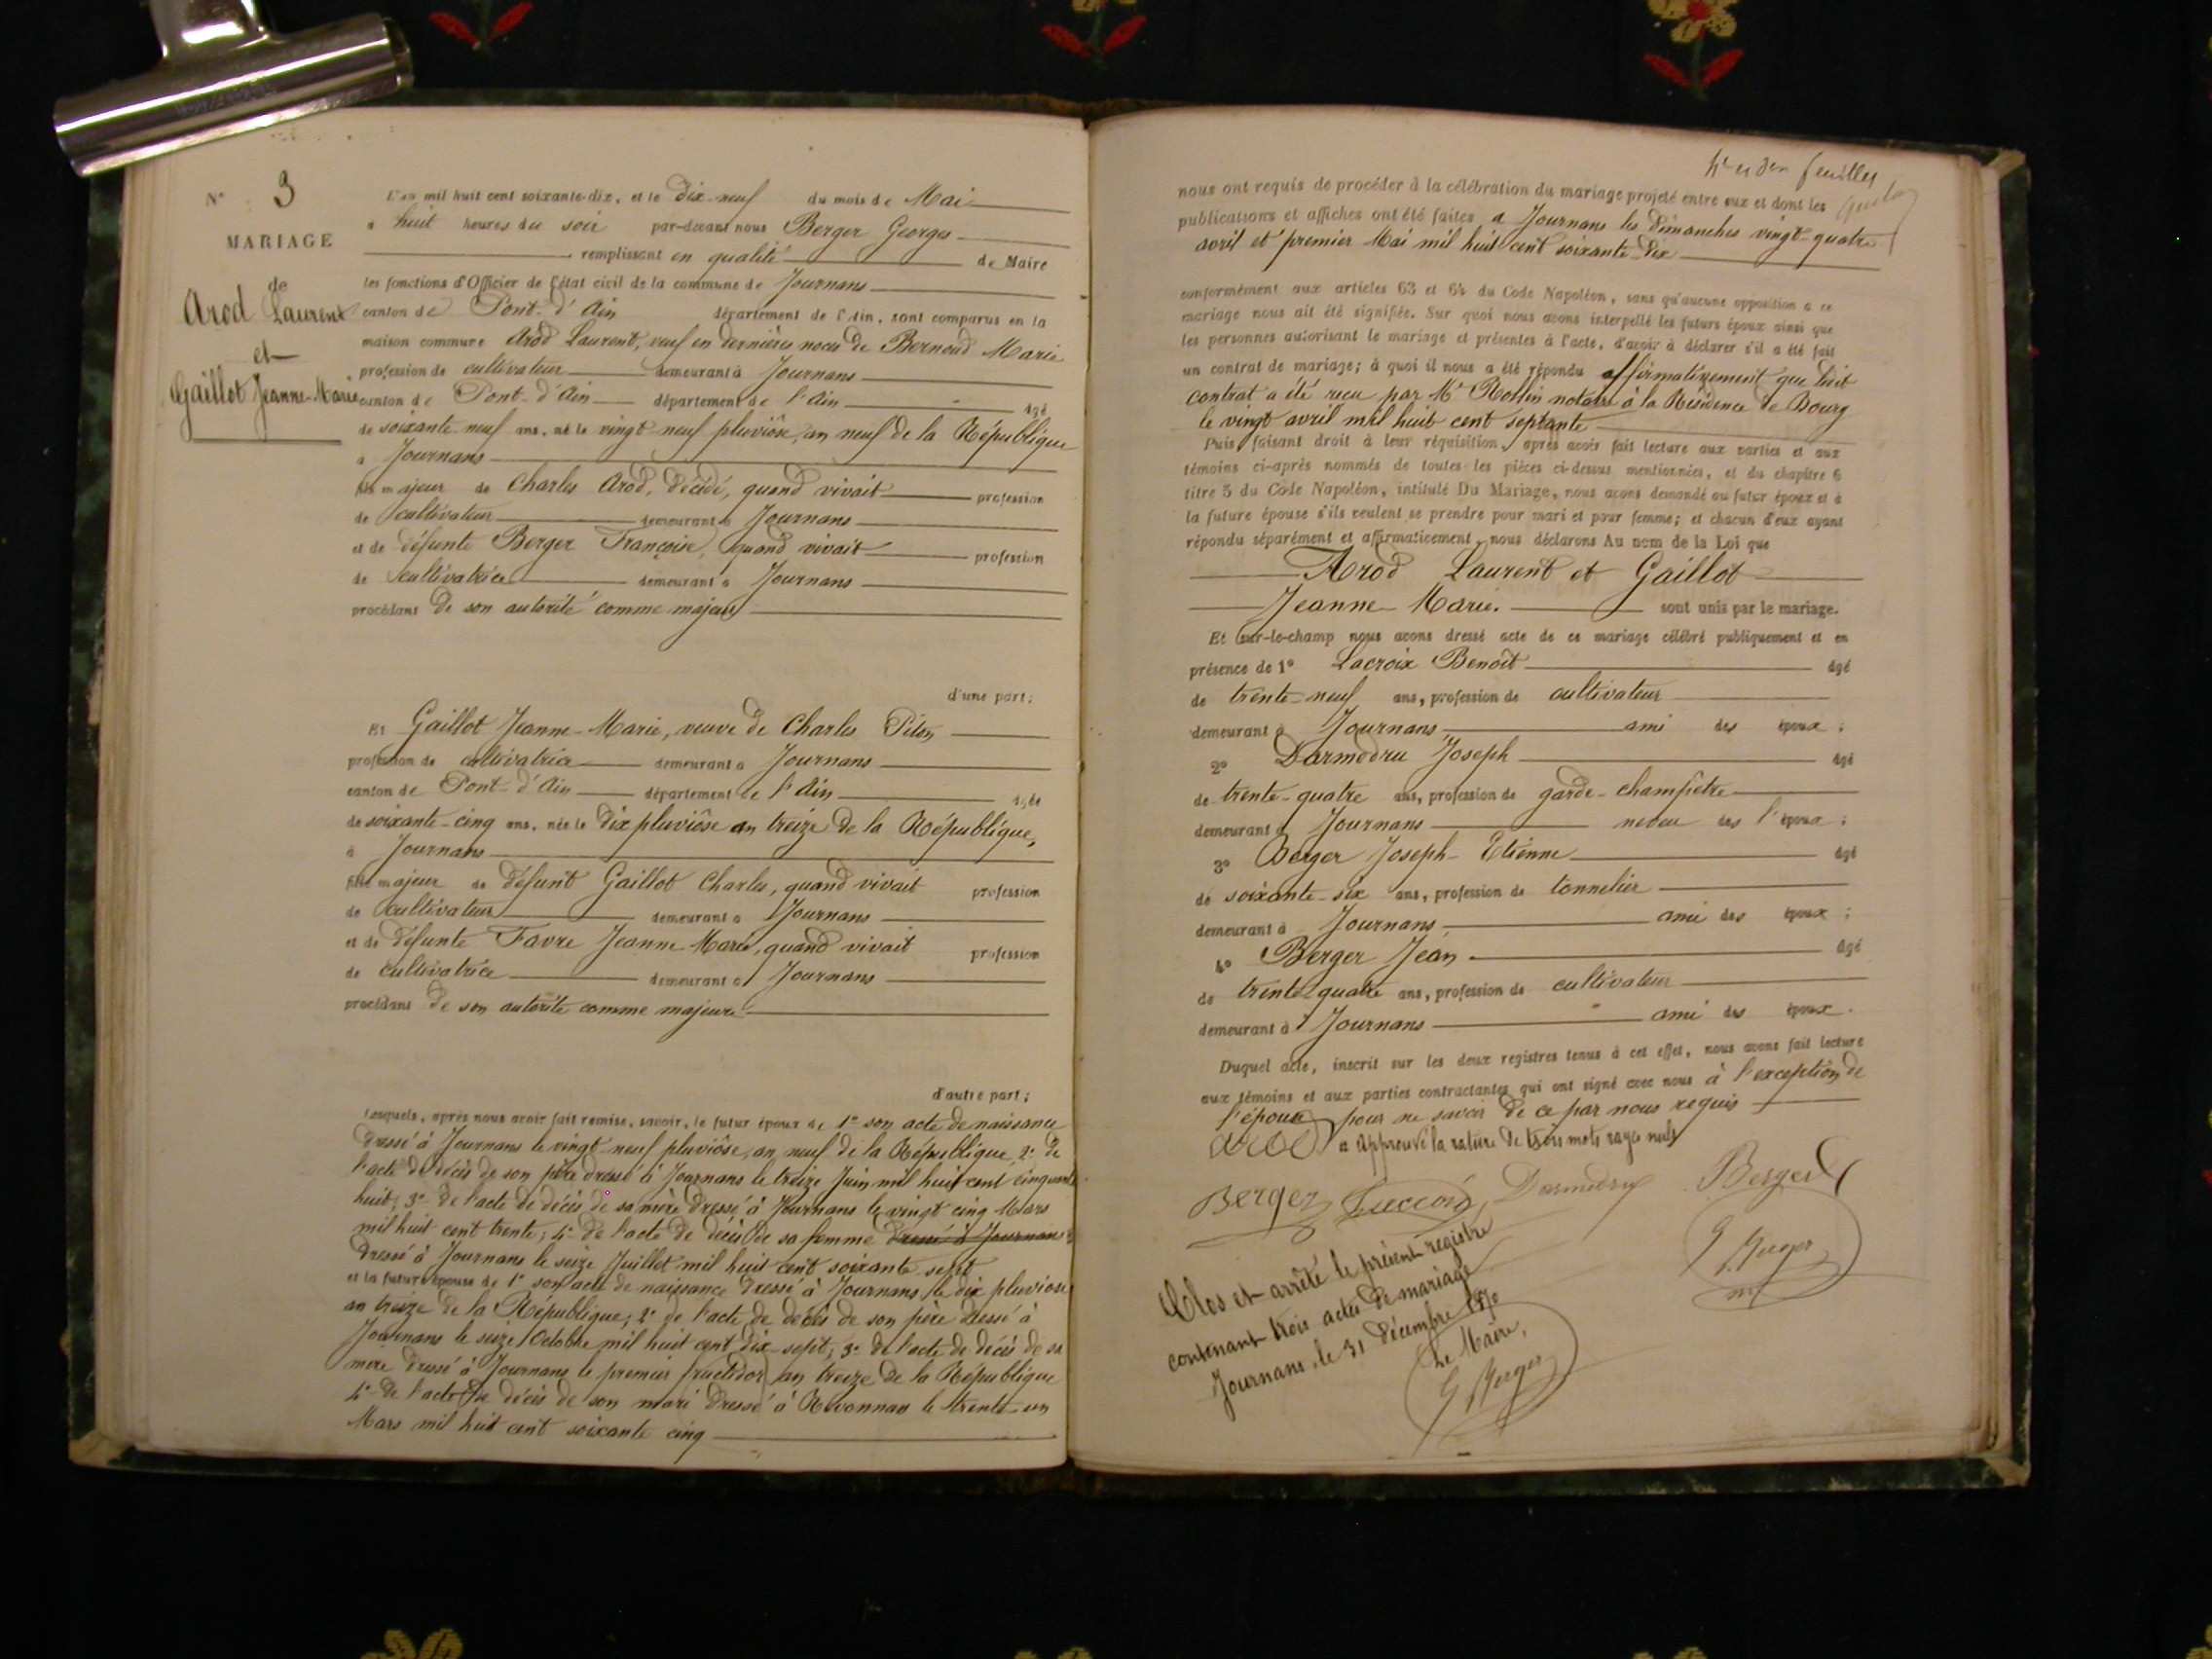 N° 3
MARIAGE
de
Arod Laurent
et
Gaillot Jeanne-Marie
L'an mil huit cent soixante-dix, et le dix-neuf du mois de Mai
à huit heures du soir par-devant nous Berger Georges
remplissant en qualité de Maire
les fonctions d'Officier de l'état civil de la commune de Journans
canton de Pont-d'Ain département de l'Ain, sont comparus en la
maison commune Arod Laurent, veuf en dernières noces de Bernoud Marie
profession de cultivateur demeurant à Journans
canton de Pont-d'Ain département de l'Ain âgé
de soixante-neuf ans, né le vingt-neuf pluviôse, an neuf de la République
à Journans
fils majeur de Charles Arod, décédé, quand vivait profession
de cultivateur demeurant à Journans
et de défunte Berger Françoise, quand vivait profession
de cultivatrice demeurant à Journans
procédant de son autorité comme majeur
d'une part;
Et Gaillot Jeanne-Marie, veuve de Charles Piton
profession de cultivatrice demeurant à Journans
canton de Pont-d'Ain département de l'Ain âgée
de soixante-cinq ans, née le dix pluviôse an treize de la République,
à Journans
fille majeur de défunt Gaillot Charles, quand vivait profession
de cultivateur demeurant à Journans
et de défunte Favre Jeanne Marie, quand vivait profession
de cultivatrice demeurant à Journans
procédant de son autorité comme majeure
d'autre part;
Lesquels, après nous avoir fait remise, savoir, le futur époux de 1° son acte de naissance
dressé à Journans le vingt-neuf pluviôse, an neuf de la République, 2° de
l'acte de décès de son père dressé à Journans le treize Juin mil huit cent cinquante
huit; 3° de l'acte de décès de sa mère dressé à Journans le vingt cinq Mars
mil huit cent trente; 4° de l'acte de décès de sa femme dressé à Journans
dressé à Journans le seize Juillet mil huit cent soixante sept
et la future épouse de 1° son acte de naissance dressé à Journans le dix pluviose
an treize de la République; 2° de l'acte de décès de son père dressé à
Journans le seize Octobre mil huit cent dix-sept; 3° de l'acte de décès de sa
mère dressé à Journans le premier fructidor an treize de la République
4° de l'acte de décès de son mari dressé à Revonnas le trente-un
Mars mil huit cent soixante cinq
feuillet
nous ont requis de procéder à la célébration du mariage projeté entre eux et dont les
publications et affiches ont été faites à Journans les dimanches vingt-quatre
avril et premier Mai mil huit cent soixante-dix
conformément aux articles 63 et 64 du Code Napoléon, sans qu'aucune opposition à ce
mariage nous ait été signifiée. Sur quoi nous avons interpellé les futurs époux ainsi que
les personnes autorisant le mariage et présentes à l'acte, d'avoir à déclarer s'il a été fait
un contrat de mariage; à quoi il nous a été répondu affirmativement que ledit
contrat a été reçu par Me Rollin notaire à la Résidence de Bourg
le vingt avril mil huit cent septante
Puis faisant droit à leur réquisition, après avoir fait lecture aux parties et aux
témoins ci-après nommés de toutes les pièces ci-dessus mentionnées, et du chapitre 6
titre 5 du Code Napoléon, intitulé Du Mariage, nous avons demandé au futur époux et à
la future épouse s'ils veulent se prendre pour mari et pour femme; et chacun d'eux ayant
répondu séparément et affirmativement, nous déclarons Au nom de la Loi que
Arod Laurent et Gaillot
Jeanne-Marie. sont unis par le mariage.
Et sur-le-champ nous avons dressé acte de ce mariage célébré publiquement et en
présence de 1° Lacroix Benoît âgé
de trente-neuf ans, profession de cultivateur
demeurant à Journans ami des époux;
2° Darmedru Joseph âgé
de trente-quatre ans, profession de garde-champêtre
demeurant à Journans neveu des l'époux;
3° Berger Joseph-Etienne âgé
de soixante-six ans, profession de tonnelier
demeurant à Journans ami des époux;
4° Berger Jean âgé
de trente-quatre ans, profession de cultivateur
demeurant à Journans ami des époux.
Duquel acte, inscrit sur les deux registres tenus à cet effet, nous avons fait lecture
aux témoins et aux parties contractantes qui ont signé avec nous à l'exception de
l'épouse pour ne savoir de ce par nous requis
Approuvé la rature de trois mots rayés nuls
Arod
Berger Darmedru Berger
G Berger
Clos et arrêté le présent registre
contenant trois actes de mariage
Journans, le 31 décembre 1870
Le Maire,
G Berger